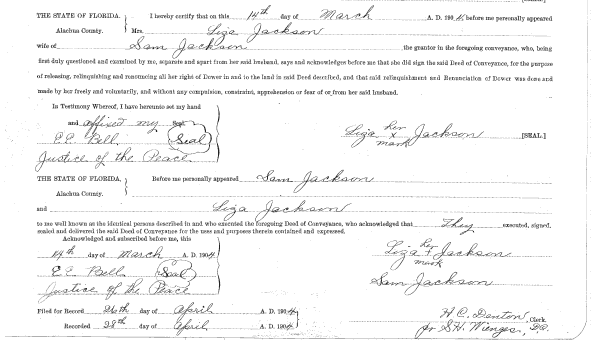 THE STATE OF FLORIDA. I hereby certify that on this 14th day of March A. D. 1904, before me personally appeared
Alachua County. Mrs. Liza Jackson
wife of Sam Jackson the grantor in the foregoing conveyance, who, being
first duly questioned and examined by me, separate and apart from her said husband, says and acknowledges before me that she did sign the said Deed of Conveyance, for the purpose
of releasing, relinquishing and renouncing all her right of Dower in and to the land in said Deed described, and that said relinquishment and Renunciation of Dower was done and
made by her freely and voluntarily, and without any compulsion, constraint, apprehension or fear of or from her said husband.
In Testimony Whereof, I have hereunto set my hand
and affixed my
E.C. Bell. Seal
Justice of the Peace
Liza her x mark Jackson [SEAL.]
THE STATE OF FLORIDA. Before me personally appeared Sam Jackson
Alachua County.
and Liza Jackson
to me well known as the identical persons described in and who executed the foregoing Deed of Conveyance, who acknowledged that They executed, signed,
sealed and delivered the said Deed of Conveyance for the uses and purposes therein contained and expressed.
Acknowledged and subscribed before me, this
14th day of March A. D. 1904
E.C. Bell Seal
Justice of the Peace
Liza her + mark Jackson
Sam Jackson
Filed for Record 26th day of April A. D. 1904
Recorded 28th day of April A. D. 1904
H. C. Denton, Clerk.
pr S.H. Wienges, D.C.